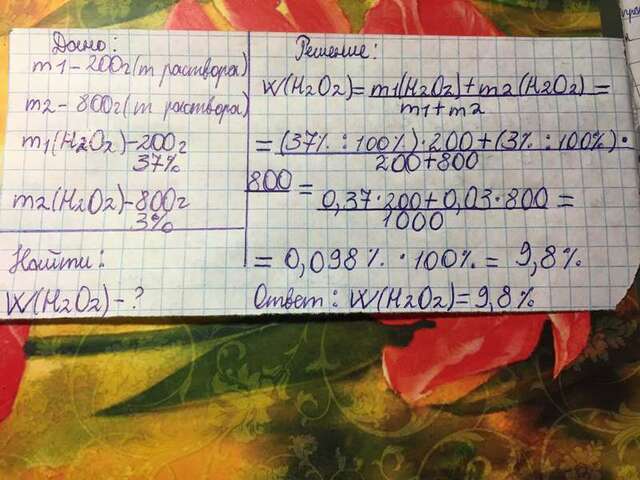 Дано:
m1 - 200г (m раствора)
m2 - 800г (m раствора)
m1(H2O2) - 200г
37%
m2(H2O2) - 800г
3%
Найти:
W(H2O2) - ?
Решение:
W(H2O2) = m1(H2O2) + m2(H2O2) =
m1 + m2
= (37% : 100%) · 200 + (3% : 100%) ·
200 + 800
800 = 0,37 · 200 + 0,03 · 800 =
1000
= 0,098% · 100% = 9,8%
Ответ: W(H2O2) = 9,8%